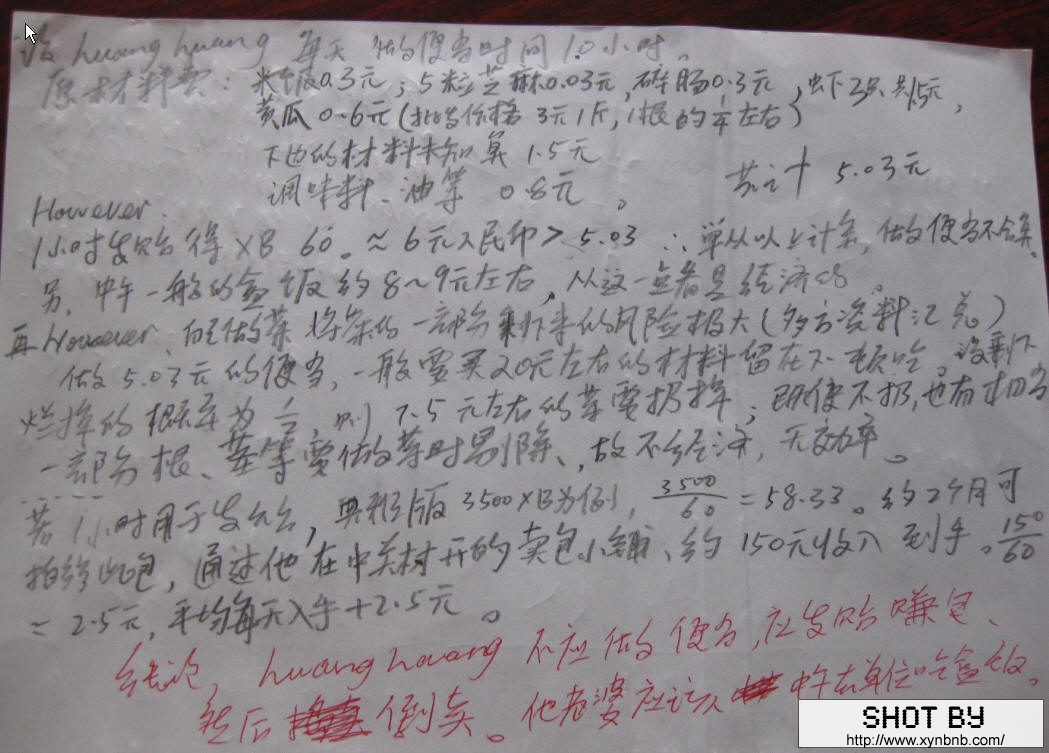 设 huang huang 每天 做便当时间 1.0 小时。
原材料费: 米饭0.3元; 5粒芝麻0.03元, 碎肠0.3元, 虾2只共1.5元,
黄瓜 0.6元(批当价格 3元1斤, 1根的 左右)
下边的材料未知 算 1.5元
调味料、油等 0.8元。
共计 5.03元
However.
1小时发贴得 XB 60。≈6元人民币 > 5.03 ∴ 单从以上计算, 做便当不合算.
另, 中午一般的盒饭约8~9元左右, 从这一点看是经济的。
再However, 自己做菜 将菜的一部分剩下来的风险极大(多方资料汇总)
做 5.03元 的便当, 一般需买20元左右的材料留在下顿吃。没剩下
烂掉的概率为 1/2, 则 7.5元左右的菜要扔掉; 即使不扔, 也有相当
一部分根、茎等要做菜时剔除, 故不经济, 无效率。
若1小时用于发帖, 典形版 3500XB为例, 3500/60 = 58.33。约2个月可
拍给此包, 通过他在中关村开的卖包小铺, 约 150元收入 到手。150/60
= 2.5元, 平均每天入手+2.5元。
结论, huang houang 不应做便当, 应发贴赚包、
然后 倒卖。他老婆应该 中午去单位吃盒饭。
SHOT BY
http://www.xynbnb.com/